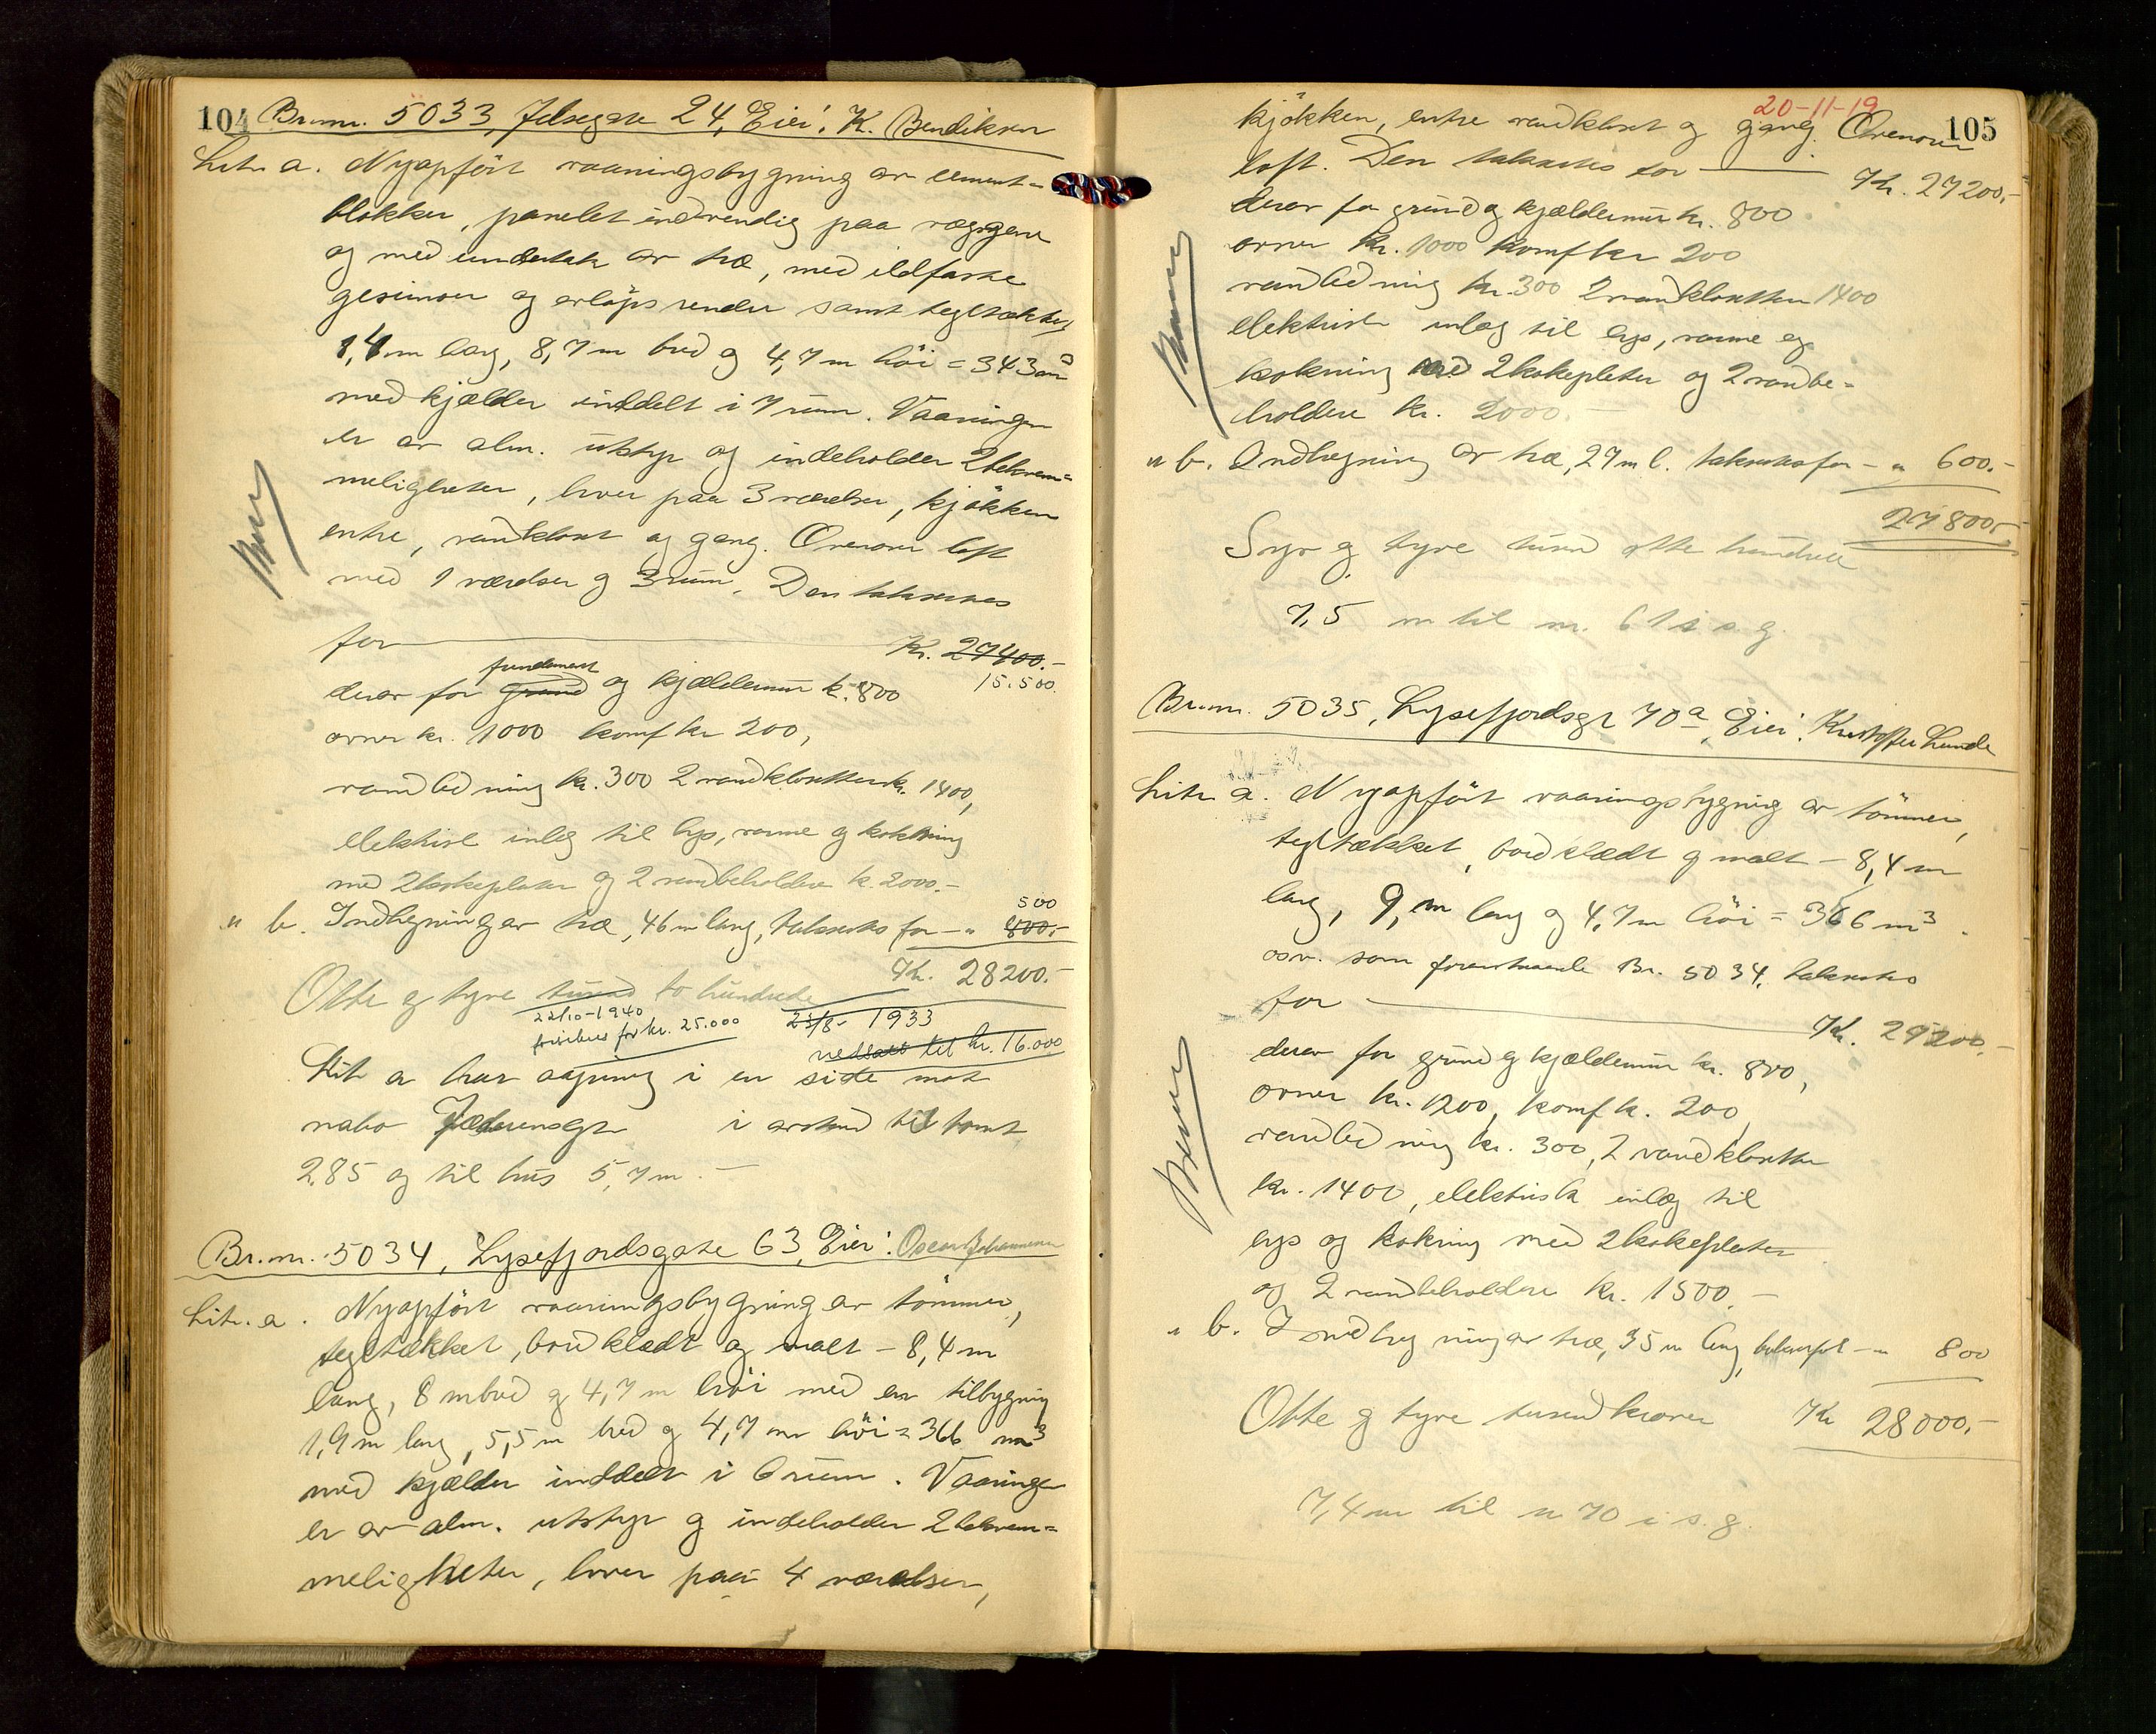 104 Br.nr. 5033, Jelsegate 24, Eier: K. Bendiksen
Litr. a. Nyopført vaaningsbygning av cement-
blokker, panelet indvendig paa væggene
og med undertak av træ, med ildfaste
gesimser og avløpsrender samt tegltækket
lang, 8,7 m bred og 4,7 m höi = 343 m³
med kjælder inddelt i 7 rum. Vaaningen
er av alm. utstyr og indeholder 2 bekvem-
meligheter, hver paa 3 værelser, kjøkken
entre, vandkloset og gang. Ovenover loft
med 1 værelser og 3 rum. Den takseres
for Kr. 27400.-
15.500.
fundament
derav for grund og kjældermur kr. 800
ovner kr. 1000 komf kr 200,
vandledning kr. 300 2 vandklosetter kr. 1400,
elektrisk inlæg til lys, varme og kokning
med 2 kokeplater og 2 vandbeholdere kr. 2000.-
500
" b. Indhegning av træ, 46 m lang, takseres for - " 800.-
Kr. 28200.-
Otte og tyve tusind to hundrede
22/10-1940
forsikres for kr. 25.000
25/8- 1933
nedsatt til kr. 16.000
Litr a har aapning i en side mot
nabo Jæderensgt i avstand til tomt
2,85 og til hus 5,7 m. -
Br.nr. 5034, Lysefjordsgate 63, Eier: Oscar Johannesen
Litr. a. Nyopført vaaningsbygning av tömmer,
tegltækket, bordklædt og malt - 8,4 m
lang, 8 m bred og 4,7 m höi med en tilbygning
1,9 m lang, 5,5 m bred og 4,7 m höi = 366 m³
med kjælder inddelt i 6 rum. Vaaningen
er av alm. utstyr og indeholder 2 bekvem-
meligheter, hver paa 4 værelser,
20-11-19
105
kjökken, entre vandklosett og gang. Ovenover
loft. Den takseres for Kr. 27200.-
derav for grund og kjældermur kr. 800
ovner kr. 1000 komf kr 200
vandledning kr. 300 2 vandklosetter 1400
elektrisk inlæg til lys, varme og
kokning med 2 kokeplater og 2 vandbe-
holdere kr. 2000.-
" b. Indhegning av træ, 27 m l. takseres for - " 600.-
27800.-
Syv og tyve tusind otte hundrede
7,5 m til nr. 61 i s. g.
Br.nr. 5035, Lysefjordsgt 70a, Eier: Kristoffer Lunde
Litr. a. Nyopført vaaningsbygning av tömmer,
tegltækket, bordklædt og malt - 8,4 m
lang, 9, m lang og 4,7 m höi = 366 m³
osv. som foranstaaende Br. 5034, takseres
for Kr. 27200.-
derav for grund og kjældermur kr. 800,
ovner kr. 1200, komf kr. 200,
vandledning kr. 300, 2 vandklosetter
kr. 1400, elektrisk inlæg til
lys og kokning med 2 kokeplater
og 2 vandbeholdere kr. 1500.-
" b. Indhegning av træ, 35 m lang, takseres for - " 800
Otte og tyve tusend kroner Kr 28000.-
7,4 m til nr 70 i s. g.